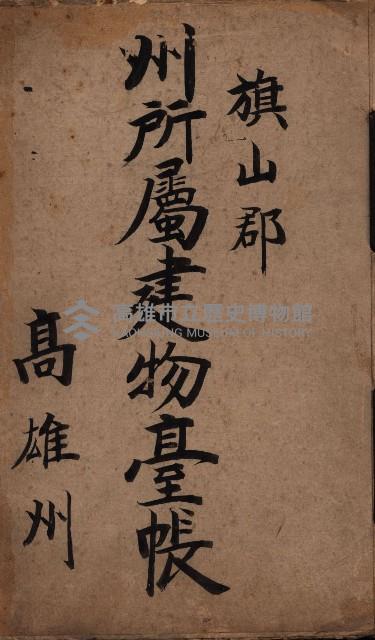 旗山郡
州所屬建物臺帳
高雄州
高雄市立歷史博物館
KAOHSIUNG MUSEUM OF HISTORY